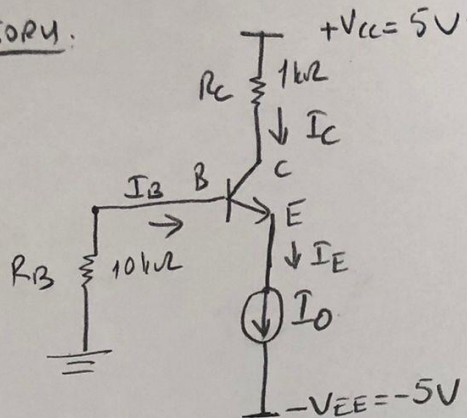 +VCC = 5V
RC 1kΩ
IC
C
IB B
E
IE
RB 10kΩ
IO
-VEE = -5V